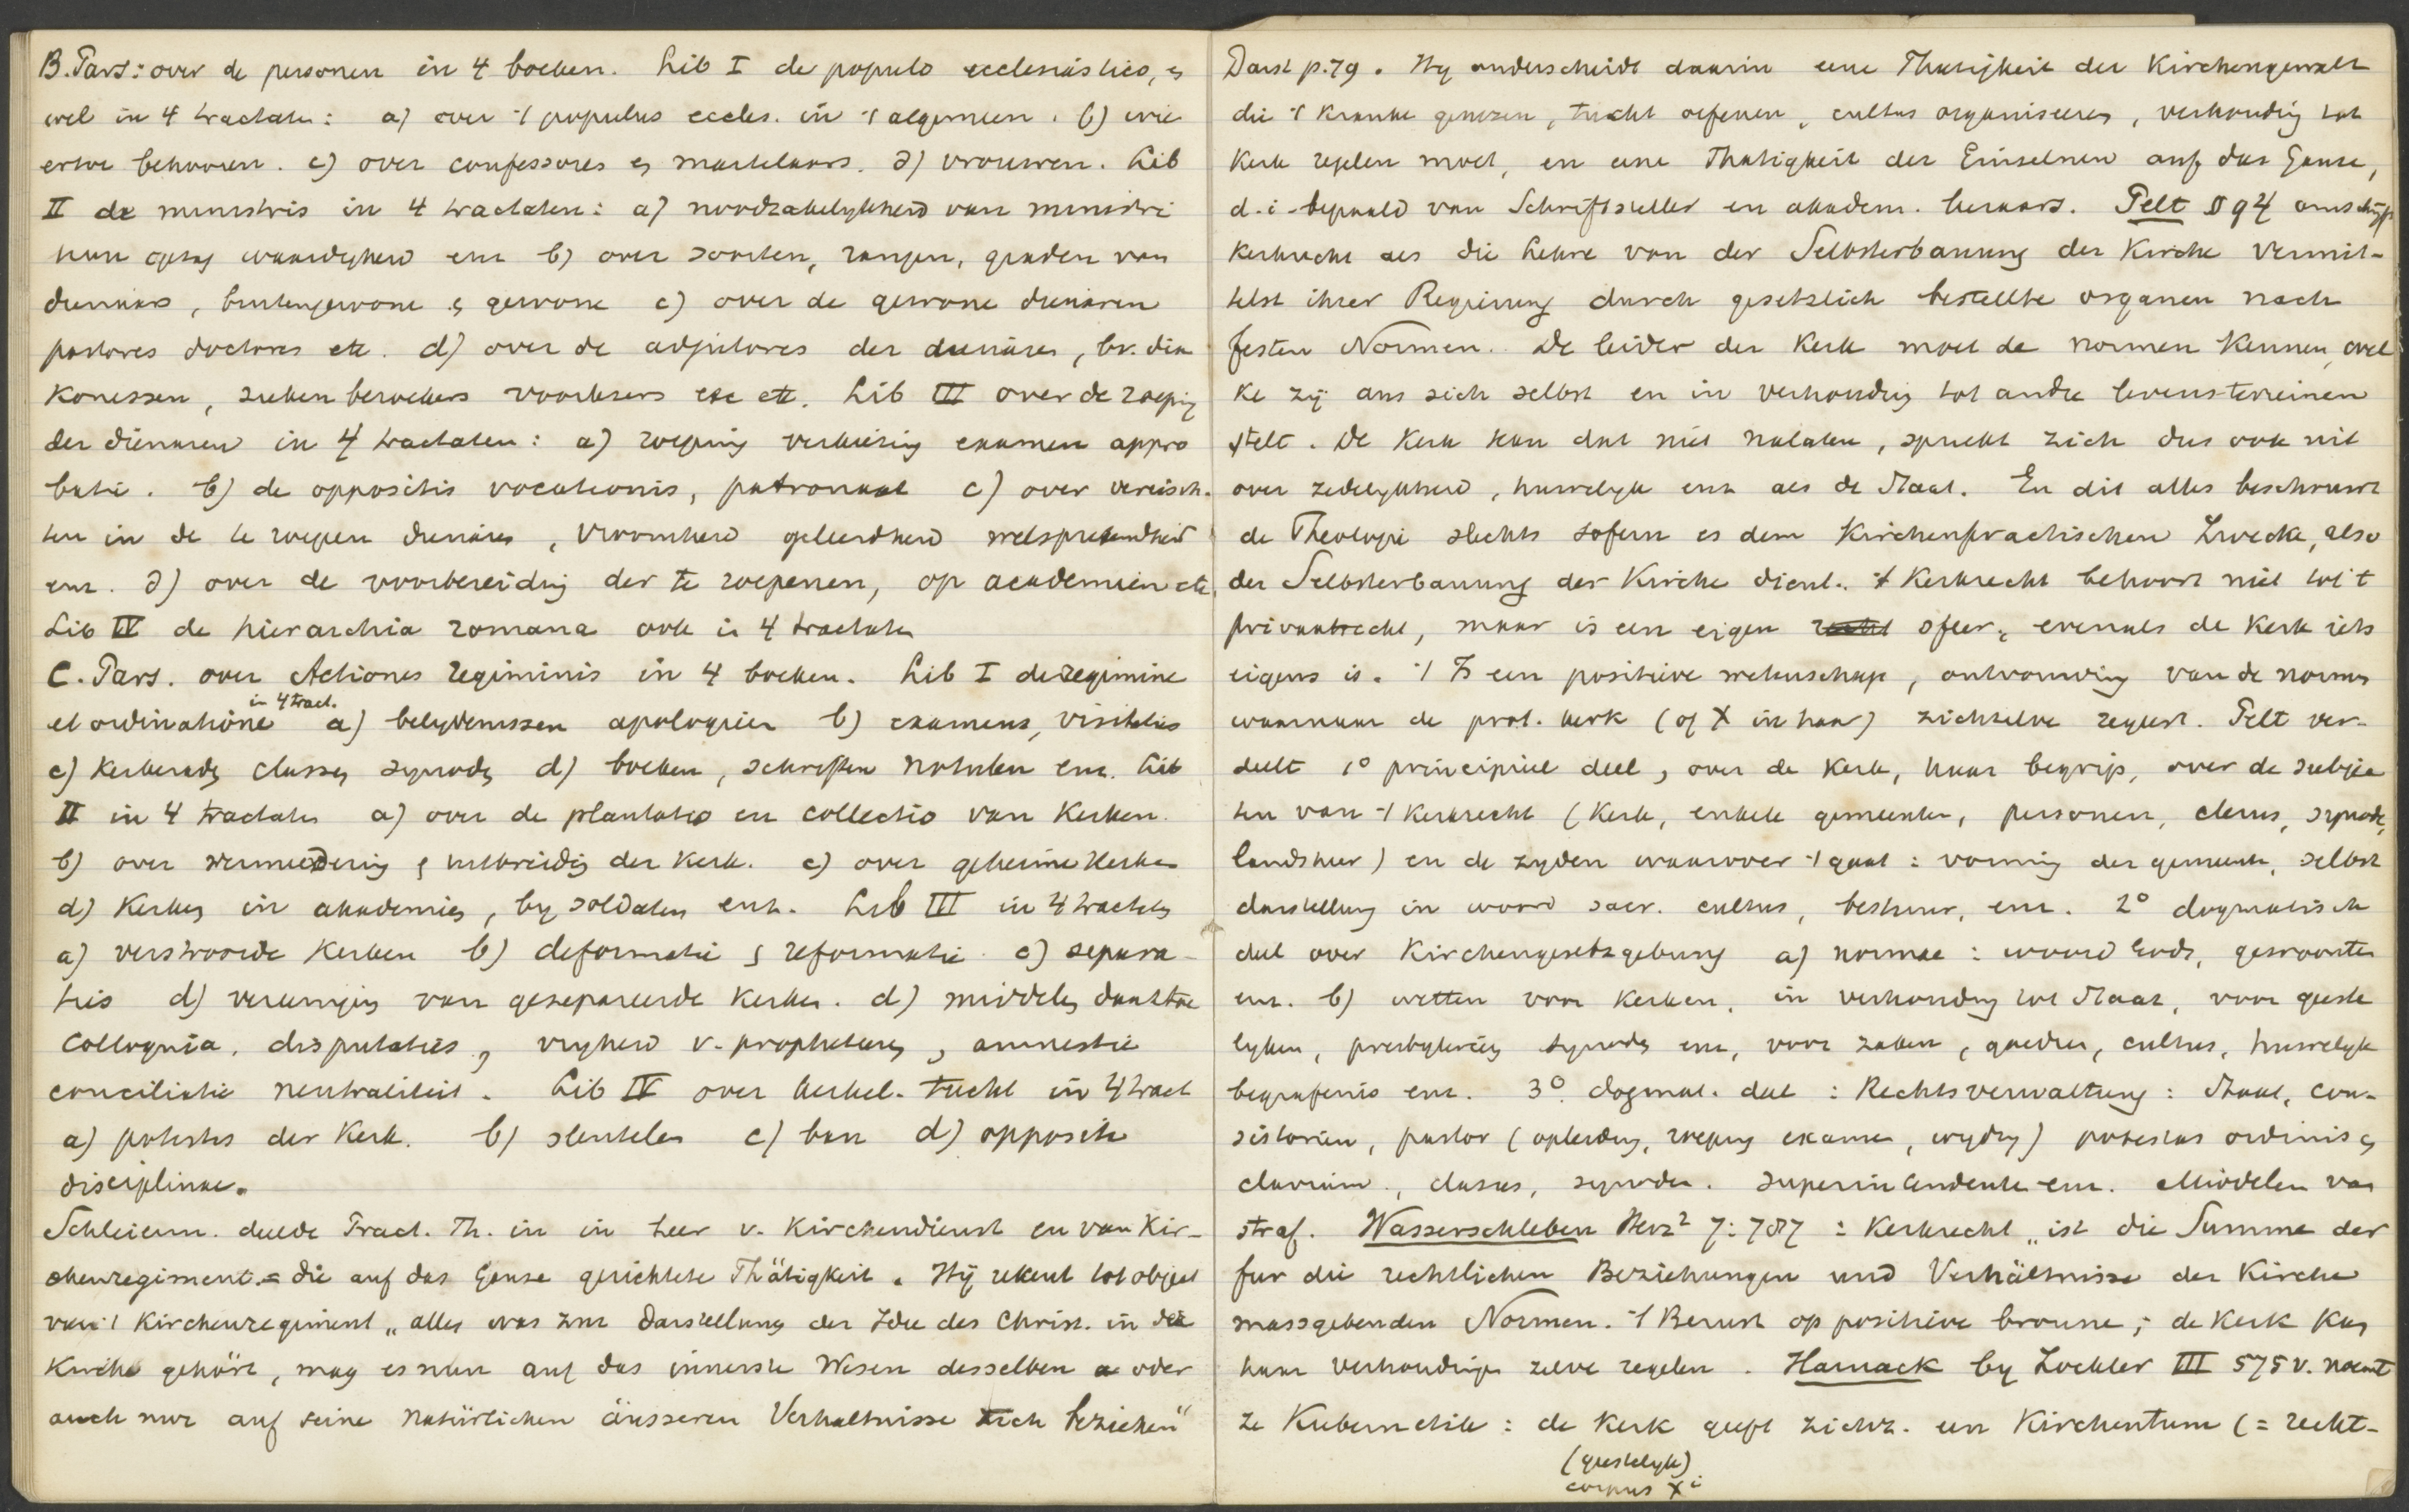 B. Pars: over de personen in 4 boeken. Lib I de populo ecclesiastico, en
wel in 4 tractaten: a) over 't populus eccles. in 't algemeen. b) wie
ertoe behooren. c) over confessores en martelaars. d) vrouwen. Lib
II de ministris in 4 tractaten: a) noodzakelykheid van ministri
hun gezag waardigheid enz b) over soorten, rangen, graden van
dienaars, buitengewone en gewone c) over de gewone dienaren
pastores doctores etc. d) over de adjutores der dienaren, bv. dia
konessen, ziekenbezoekers voorlezers etc etc. Lib III over de roeping
der dienaren in 4 tractaten: a) roeping verkiezing examen appro
batie. b) de oppositis vocationis, patronaat c) over vereisch-
ten in de te roepen dienaren, vroomheid geleerdheid welsprekendheid
enz. d) over de voorbereiding der te roepenen, op academien etc.
Lib IV de hierarchia romana ook in 4 tractaten
C. Pars. over Actiones regiminis in 4 boeken. Lib I de regimine
et ordinatione in 4 tract. a) belydenissen apologien b) examens, visitaties
c) Kerkeraden classen synoden d) boeken, schriften notulen enz. Lib
II in 4 tractaten a) over de plantatio en collectio van Kerken.
b) over vermeerdering en uitbreiding der Kerk. c) over geheime Kerken
d) Kerken in akademies, by soldaten enz. Lib III in 4 tractaten
a) verstrooide Kerken b) deformatie en reformatie c) separa-
ties d) vereeniging van gesepareerde Kerken. d) middelen daartoe
Colloquia, disputaties, vryheid v. propheteeren, amnestie
conciliatie neutraliteit. Lib IV over Kerkel. tucht in 4 tract
a) potestas der Kerk. b) sleutelen c) ban d) opposita
disciplinae.
Schleierm. deelde Pract. Th. in in leer v. Kirchendienst en van Kir-
chenregiment = die auf das Ganze gerichtete Thätigkeit. Hij rekent tot object
van 't Kirchenregiment „alles was zur Darstellung der Idee des Christ. in der
Kirche gehört, mag es nun auf das innerste Wesen desselben oder
auch nur auf seine natürlichen äusseren Verhaltnisse sich beziehen"
Darst p. 79. Hy onderscheidt daarin eene Thatigkeit der Kirchengewalt
die 't Kranke genezen, tucht oefenen, cultus organiseeren, verhouding tot
Kerk regelen moet, en eene Thatigkeit der Einzelnen auf das Ganze,
d.i. bepaald van Schriftsteller en akadem. leeraars. Pelt § 94 omschryft
Kerkrecht als die Lehre von der Selbsterbauung der Kirche vermit-
telst ihrer Regierung durch gesetzlich bestellte organen nach
festen Normen. De leider der Kerk moet de normen kennen, wel
ke zij aan zich zelbst en in verhouding tot andre levensterreinen
stelt. De Kerk kan dat niet nalaten, spreekt zich dus ook uit
over zedelykheid, huwelyk enz als de Staat. En dit alles beschouwt
de Theologie slechts sofern es dem Kirchenpractischen Zwecke, also
der Selbsterbauung der Kirche dient. 't Kerkrecht behoort niet tot 't
privaatrecht, maar is een eigen sfeer, evenals de Kerk iets
eigens is. 't Is een positieve wetenschap, ontvouwing van de normen
waarnaar de prot. Kerk (of X in haar) zichzelve regeert. Pelt ver-
deelt 1° principieel deel, over de Kerk, haar begrip, over de subjec
ten van 't Kerkrecht (Kerk, enkele gemeenten, personen, clerus, synode,
landsheer) en de zyden waarover 't gaat: vorming der gemeente, selbst
darstellung in woord sacr. cultus, bestuur, enz. 2° dogmatisch
deel over Kirchengesetzgebung a) normae: woord Gods, gewoonten
enz. b) wetten voor Kerken, in verhouding tot Staat, voor geeste
lyken, presbyterien synoden enz, voor zaken, goederen, cultus, huwelyk
begrafenis enz. 3° dogmat. deel: Rechtsverwaltung: Staat, con-
sistorien, pastor (opleiding, roeping examen, wyding) potestas ordinis en
clavium, classes, synoden. superintendenten enz. Middelen van
straf. Wasserschleben Herz² 7:787: Kerkrecht „ist die Summe der
fur die rechtlichen Beziehungen und Verhältnisse der Kirche
massgebenden Normen. 't Berust op positieve bronnen; de Kerk kan
haar verhoudingen zelve regelen. Harnack by Zockler III 575 v. noemt
ze Kubernetik: de Kerk geeft zichz. een Kirchentum (= recht-
(geestelyk)
corpus Xi